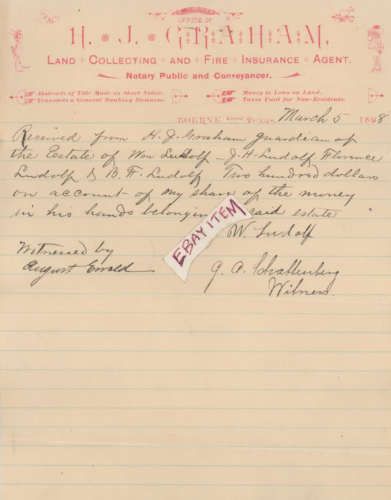 OFFICE OF
H. J. GRAHAM,
LAND COLLECTING AND FIRE INSURANCE AGENT.
Notary Public and Conveyancer.
Abstracts of Title Made on Short Notice.
Transacts a General Banking Business.
Money to Loan on Land.
Taxes Paid for Non-Residents.
BOERNE TEXAS March 5 1898
Received from H. J. Graham guardian of
the Estate of Wm Ludolf J. H. Ludolf Florence
Ludolf & B. F. Ludolf Two hundred dollars
on account of my share of the money
in his hands belonging said estate
EBAY ITEM
W. Ludolf
Witnessed by
August Ewald
G. A. Schattenberg
Witness